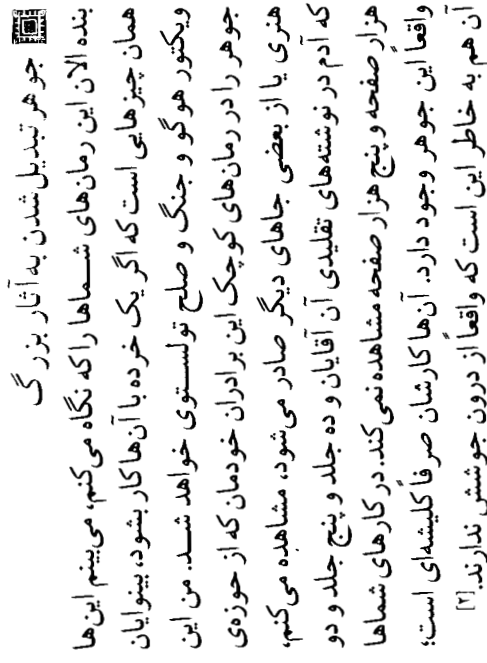 جوهر تبدیل شدن به آثار بزرگ
بنده الان این رمان‌های شماها را که نگاه می‌کنم، می‌بینم این‌ها
همان چیزهایی است که اگر یک خرده با آن‌ها کار بشود، بینوایان
ویکتور هوگو و جنگ و صلح تولستوی خواهد شد. من این
جوهر را در رمان‌های کوچک این برادران خودمان که از حوزه‌ی
هنری یا از بعضی جاهای دیگر صادر می‌شود، مشاهده می‌کنم،
که آدم در نوشته‌های تقلیدی آن آقایان و ده جلد و پنج جلد و دو
هزار صفحه و پنج هزار صفحه مشاهده نمی‌کند. در کارهای شماها
واقعاً این جوهر وجود دارد. آن‌ها کارشان صرفاً کلیشه‌ای است؛
آن هم به خاطر این است که واقعاً از درون جوشش ندارند.[۲]